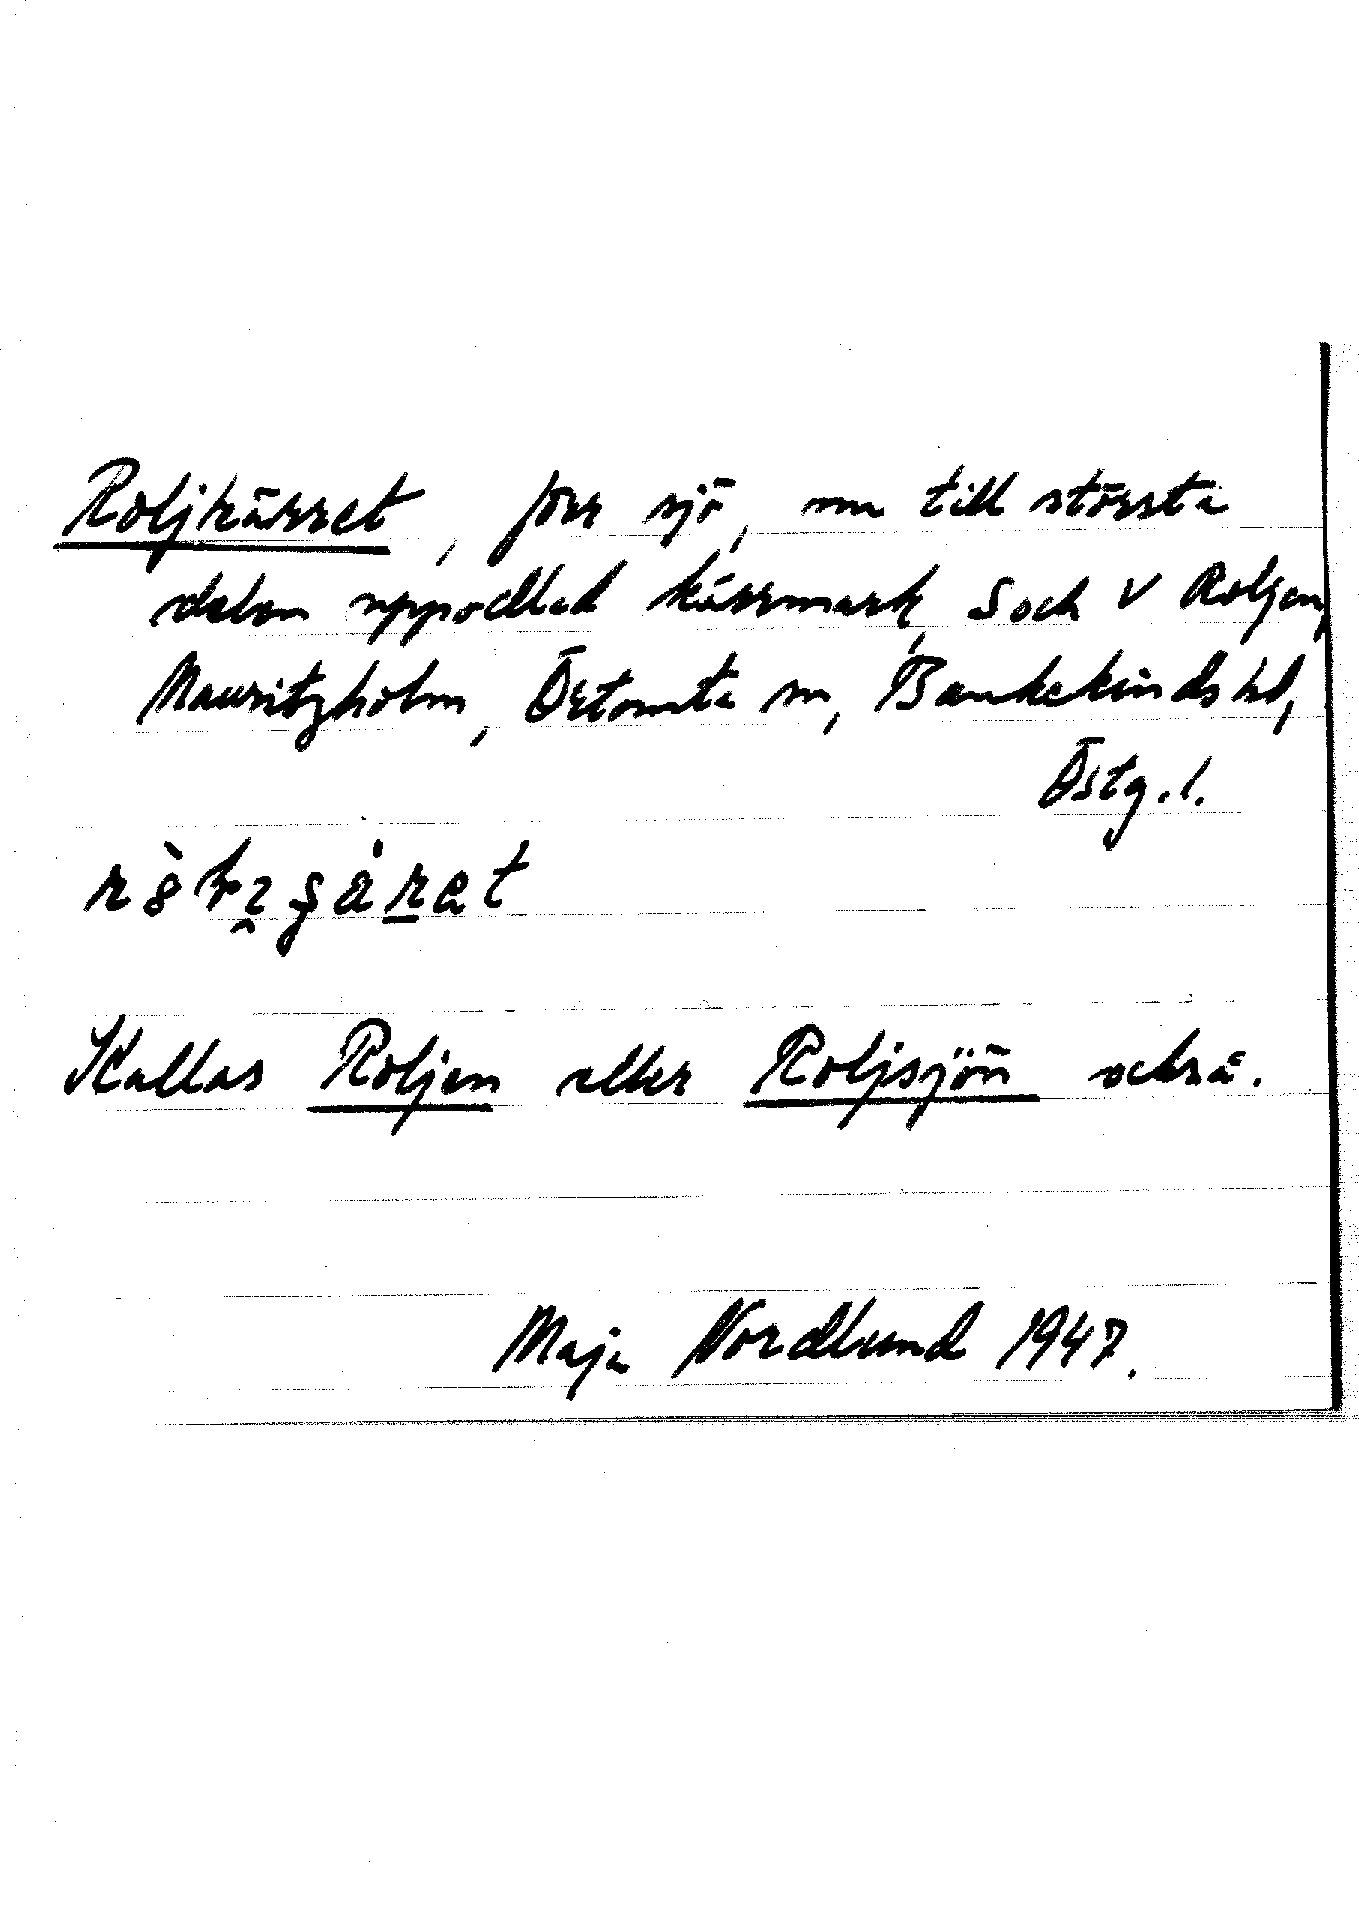 Roljkärret, förr sjö, nu till största
delen uppodlad kärrmark, S och V Roljen,
Mauritzholm, Örtomta sn, Bankekinds hd,
Östg. l.
Kallas Roljen eller Roljsjön också.
Maja Nordlund 1947.